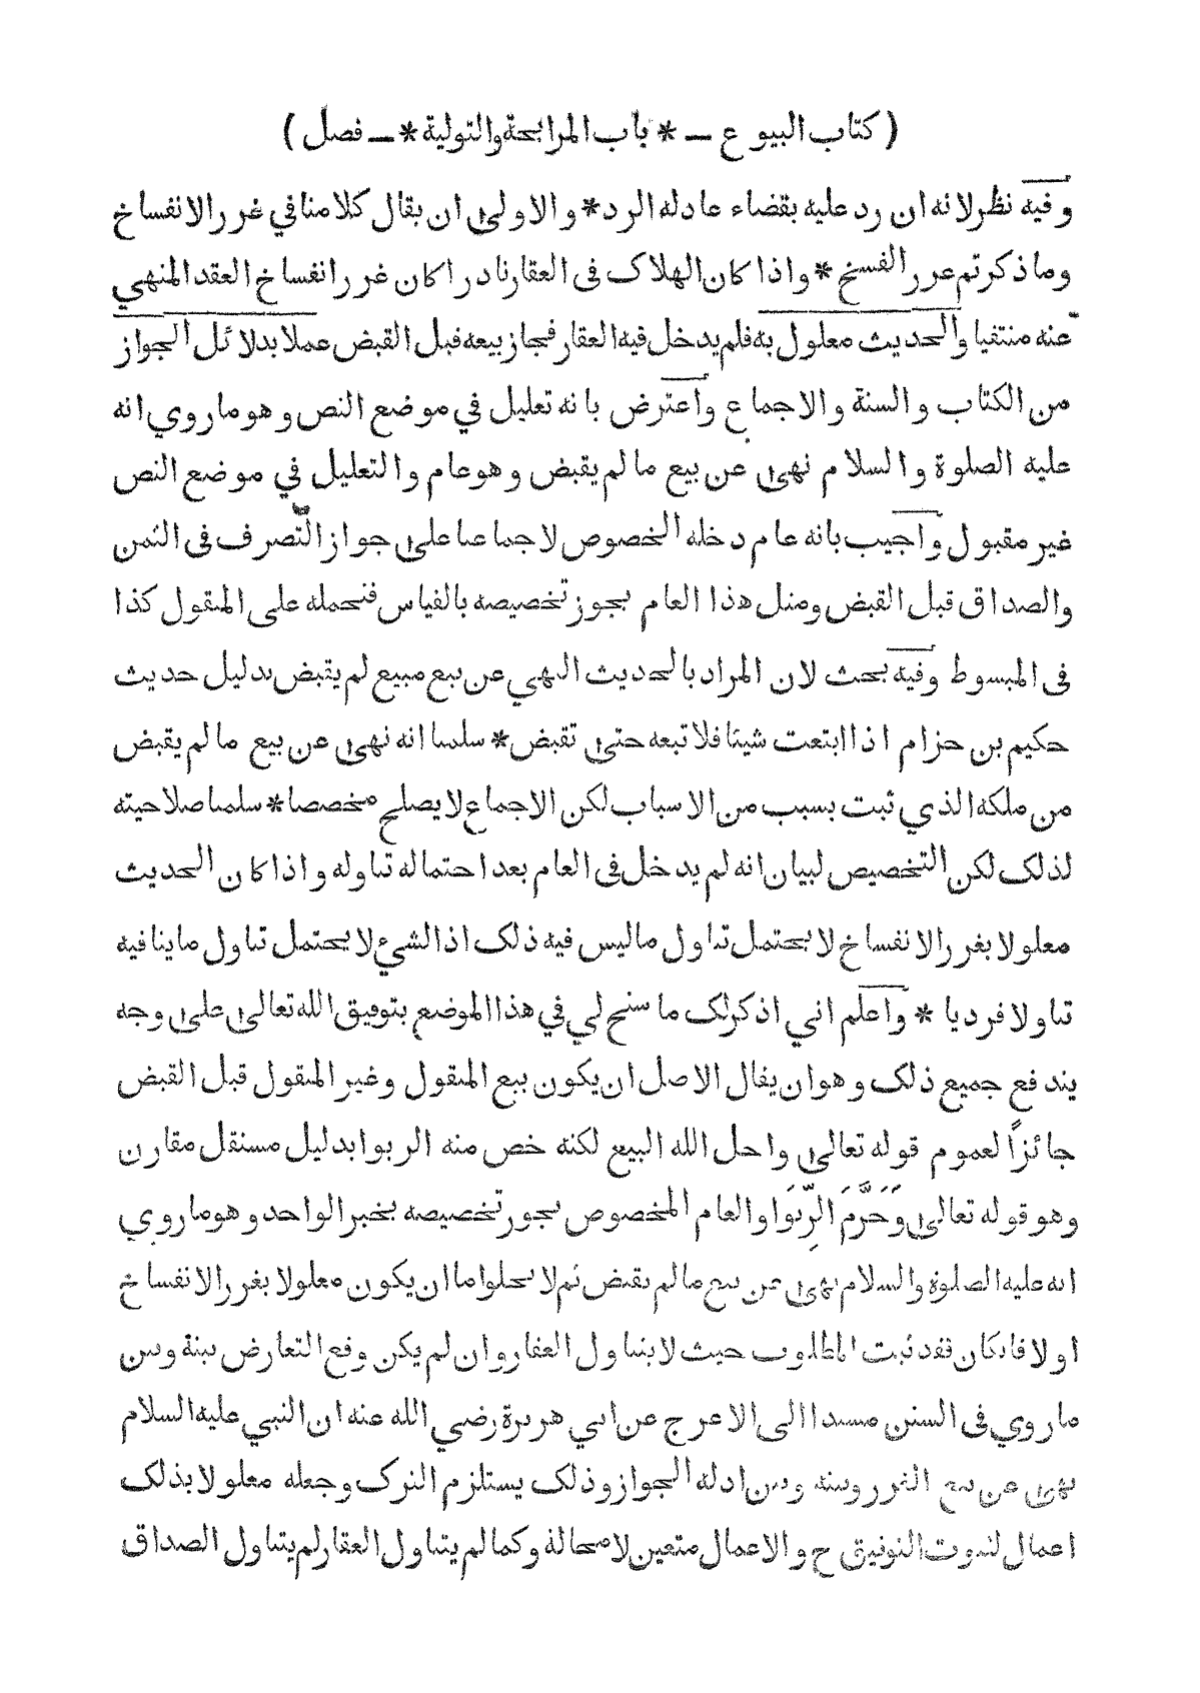 ( كتاب البيوع ــ * باب المرابحة والتولية * ــ فصل )
وفيه نظر لانه ان رد عليه بقضاء عاد له الرد * والاولى ان يقال كلامنا في غرر الانفساخ
وما ذكرتم غرر الفسخ * واذا كان الهلاك في العقار نادرا كان غرر انفساخ العقد المنهي
عنه منتفيا والحديث معلول به فلم يدخل فيه العقار فجاز بيعه قبل القبض عملا بدلائل الجواز
من الكتاب والسنة والاجماع واعترض بانه تعليل في موضع النص وهو ما روي انه
عليه الصلوة والسلام نهى عن بيع ما لم يقبض وهو عام والتعليل في موضع النص
غير مقبول واجيب بانه عام دخله الخصوص لاجماعنا على جواز التصرف في الثمن
والصداق قبل القبض ومثل هذا العام يجوز تخصيصه بالقياس فنحمله على المنقول كذا
في المبسوط وفيه بحث لان المراد بالحديث النهي عن بيع مبيع لم يقبض بدليل حديث
حكيم بن حزام اذا ابتعت شيئا فلا تبعه حتى تقبض * سلمنا انه نهى عن بيع ما لم يقبض
من ملكه الذي ثبت بسبب من الاسباب لكن الاجماع لا يصلح مخصصا * سلمنا صلاحيته
لذلك لكن التخصيص لبيان انه لم يدخل في العام بعد احتماله تناوله واذا كان الحديث
معلولا بغرر الانفساخ لا يحتمل تناول ما ليس فيه ذلك اذ الشيء لا يحتمل تناول ما ينافيه
تناولا فرديا * واعلم اني اذكر لك ما سنح لي في هذا الموضع بتوفيق الله تعالى على وجه
يندفع جميع ذلك وهو ان يقال الاصل ان يكون بيع المنقول وغير المنقول قبل القبض
جائزاً لعموم قوله تعالى واحل الله البيع لكنه خص منه الربوا بدليل مستقل مقارن
وهو قوله تعالى وَحَرَّمَ الرِّبوَا والعام المخصوص يجوز تخصيصه بخبر الواحد وهو ما روي
انه عليه الصلوة والسلام نهى عن بيع ما لم يقبض ثم لا يخلو اما ان يكون معلولا بغرر الانفساخ
اولا فان كان فقد ثبت المطلوب حيث لا يتناول العقار وان لم يكن وقع التعارض بينه وبين
ما روي في السنن مسندا الى الاعرج عن ابي هريرة رضي الله عنه ان النبي عليه السلام
نهى عن بيع الغرر وبينه وبين ادلة الجواز وذلك يستلزم الترك وجعله معلولا بذلك
اعمال لثبوت التوفيق ح والاعمال متعين لا محالة وكما لم يتناول العقار لم يتناول الصداق